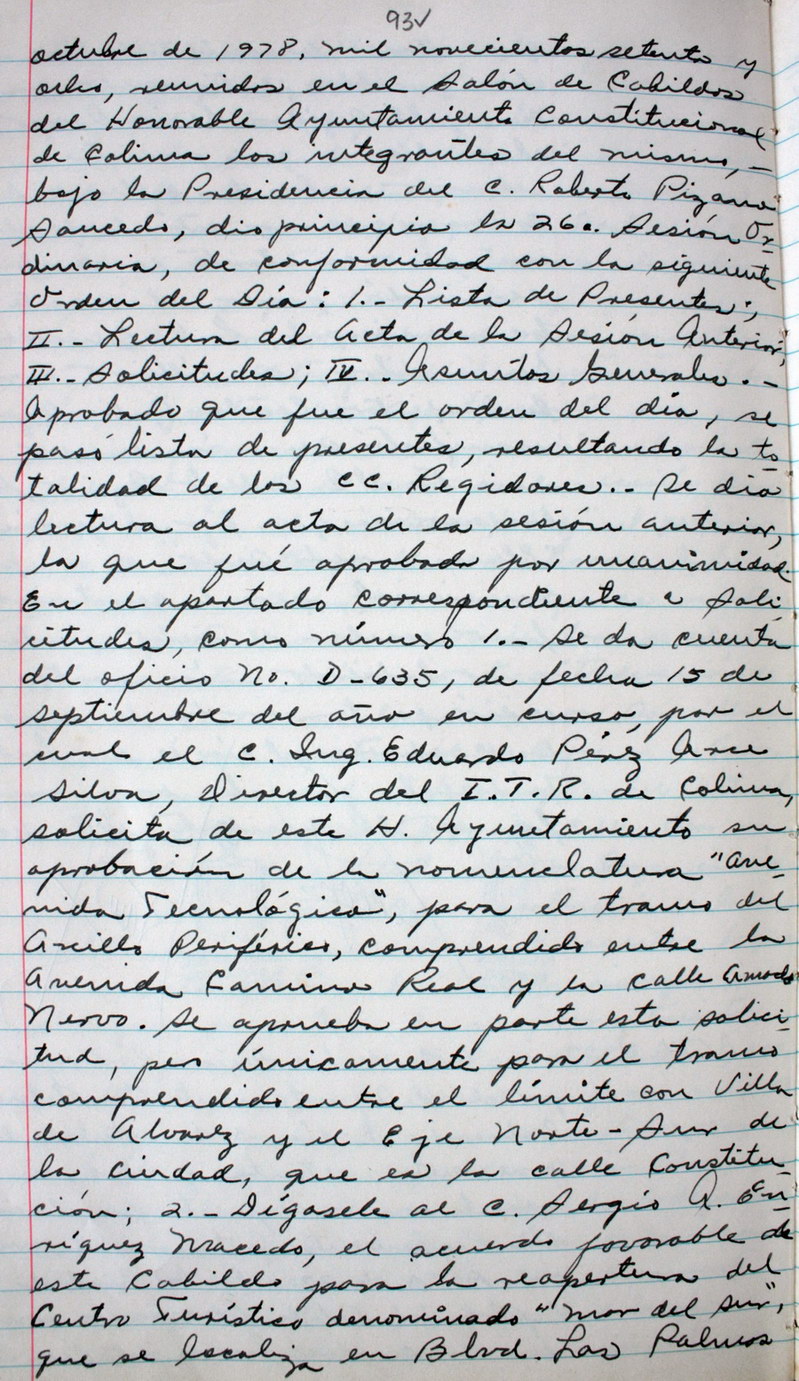 93v
octubre de 1978, mil novecientos setenta y
ocho, reunidos en el Salón de Cabildos
del Honorable Ayuntamiento Constitucional
de Colima los integrantes del mismo, -
bajo la Presidencia del C. Roberto Pizano
Saucedo, dio principio la 26a. Sesión Or-
dinaria, de conformidad con la siguiente
Orden del Día: 1.- Lista de Presentes;
II.- Lectura del Acta de la Sesión Anterior;
III.- Solicitudes; IV.- Asuntos Generales. -
Aprobado que fue el orden del día, se
pasó lista de presentes, resultando la to-
talidad de los CC. Regidores.- Se dio
lectura al acta de la sesión anterior,
la que fué aprobada por unanimidad.
En el apartado correspondiente a Soli-
citudes, como número 1.- Se da cuenta
del oficio No. D-635, de fecha 15 de
septiembre del año en curso, por el
cual el C. Ing. Eduardo Pérez Arce
Silva, Director del I.T.R. de Colima,
solicita de este H. Ayuntamiento su
aprobación de la nomenclatura "Ave-
nida Tecnológico", para el tramo del
Anillo Periférico, comprendido entre la
Avenida Camino Real y la calle Amado
Nervo. Se aprueba en parte esta solici-
tud, pero únicamente para el tramo
comprendido entre el límite con Villa
de Alvarez y el Eje Norte-Sur de
la ciudad, que es la calle Constitu-
ción; 2.- Dígasele al C. Sergio A. En-
ríquez Macedo, el acuerdo favorable de
este Cabildo para la reapertura del
Centro Turístico denominado "Mar del Sur",
que se localiza en Blvd. Las Palmas